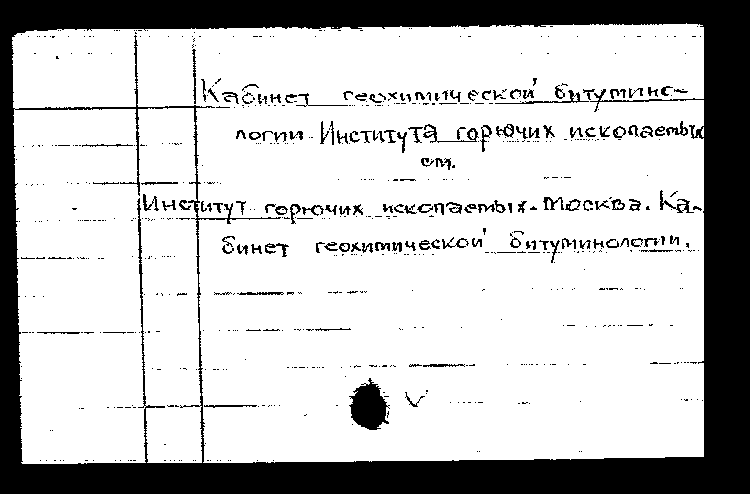 Кабинет геохимической битумино-
логии Института горючих ископаемых
см.
Институт горючих ископаемых. Москва. Ка-
бинет геохимической битуминологии.
V